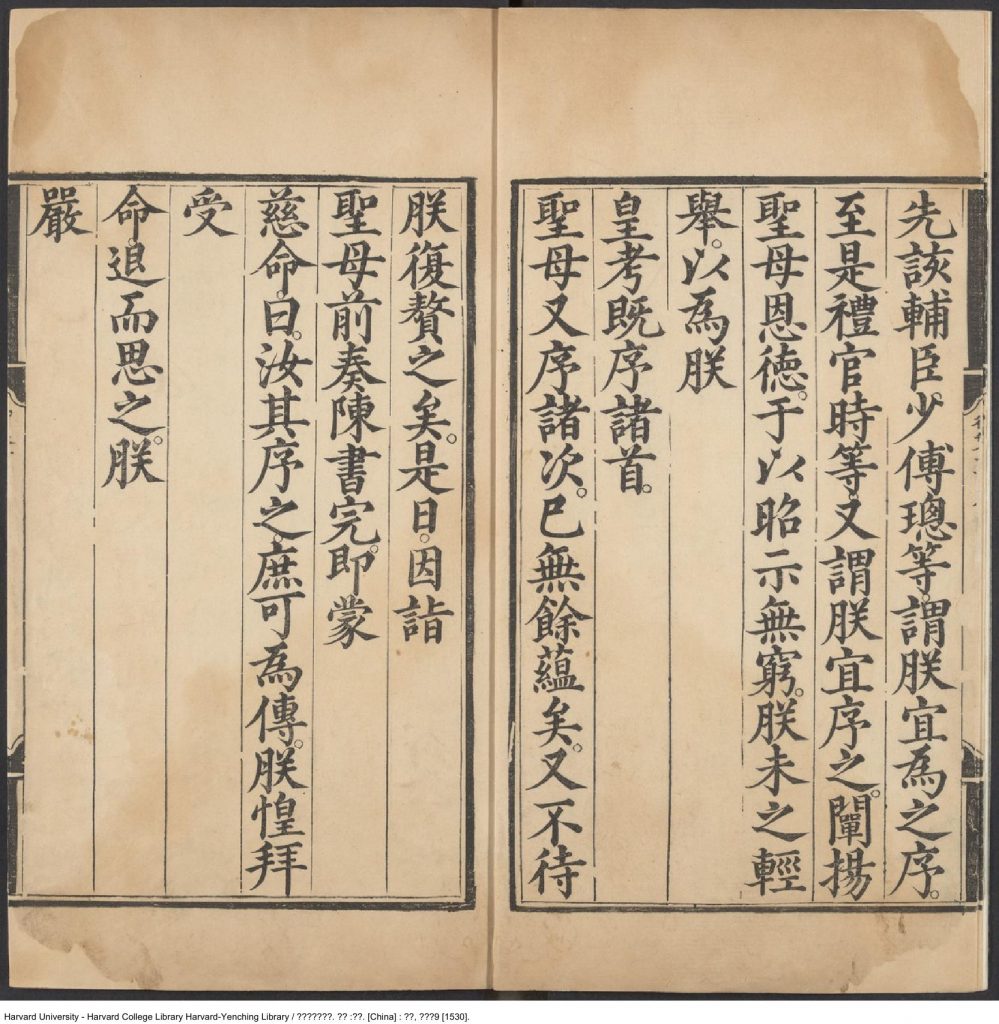 先該輔臣少傅璁等謂朕宜為之序。
至是禮官時等又謂朕宜序之。闡揚
聖母恩德。于以昭示無窮。朕未之輕
舉。以為朕
皇考既序諸首。
聖母又序諸次。已無餘蘊矣。又不待
朕復贅之矣。是日。因詣
聖母前奏陳書完。即蒙
慈命曰。汝其序之。庶可為傳。朕惶拜
受
命。退而思之。朕
嚴
Harvard University - Harvard College Library Harvard-Yenching Library / ???????. ?? :??. [China] : ??, ???9 [1530].